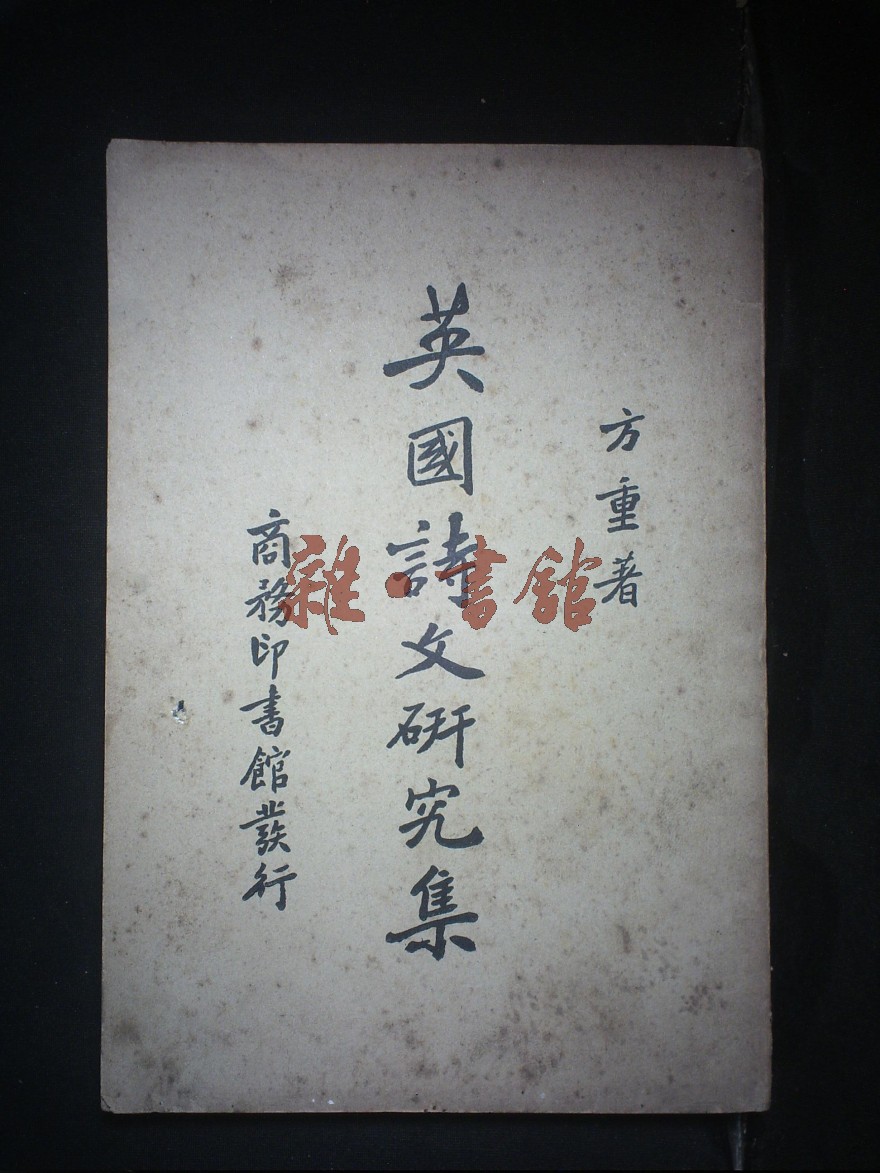 方重著
英國詩文研究集
商務印書館發行
雜·書館